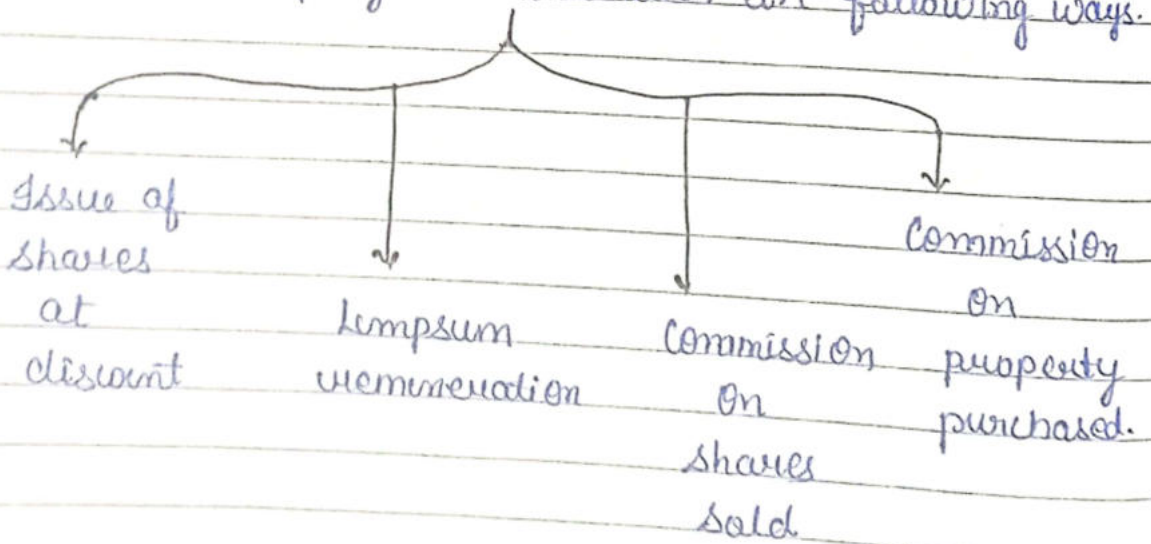 following ways.
Issue of
shares
at
discount
Lumpsum
remuneration
Commission
on
shares
sold
Commission
on
property
purchased.